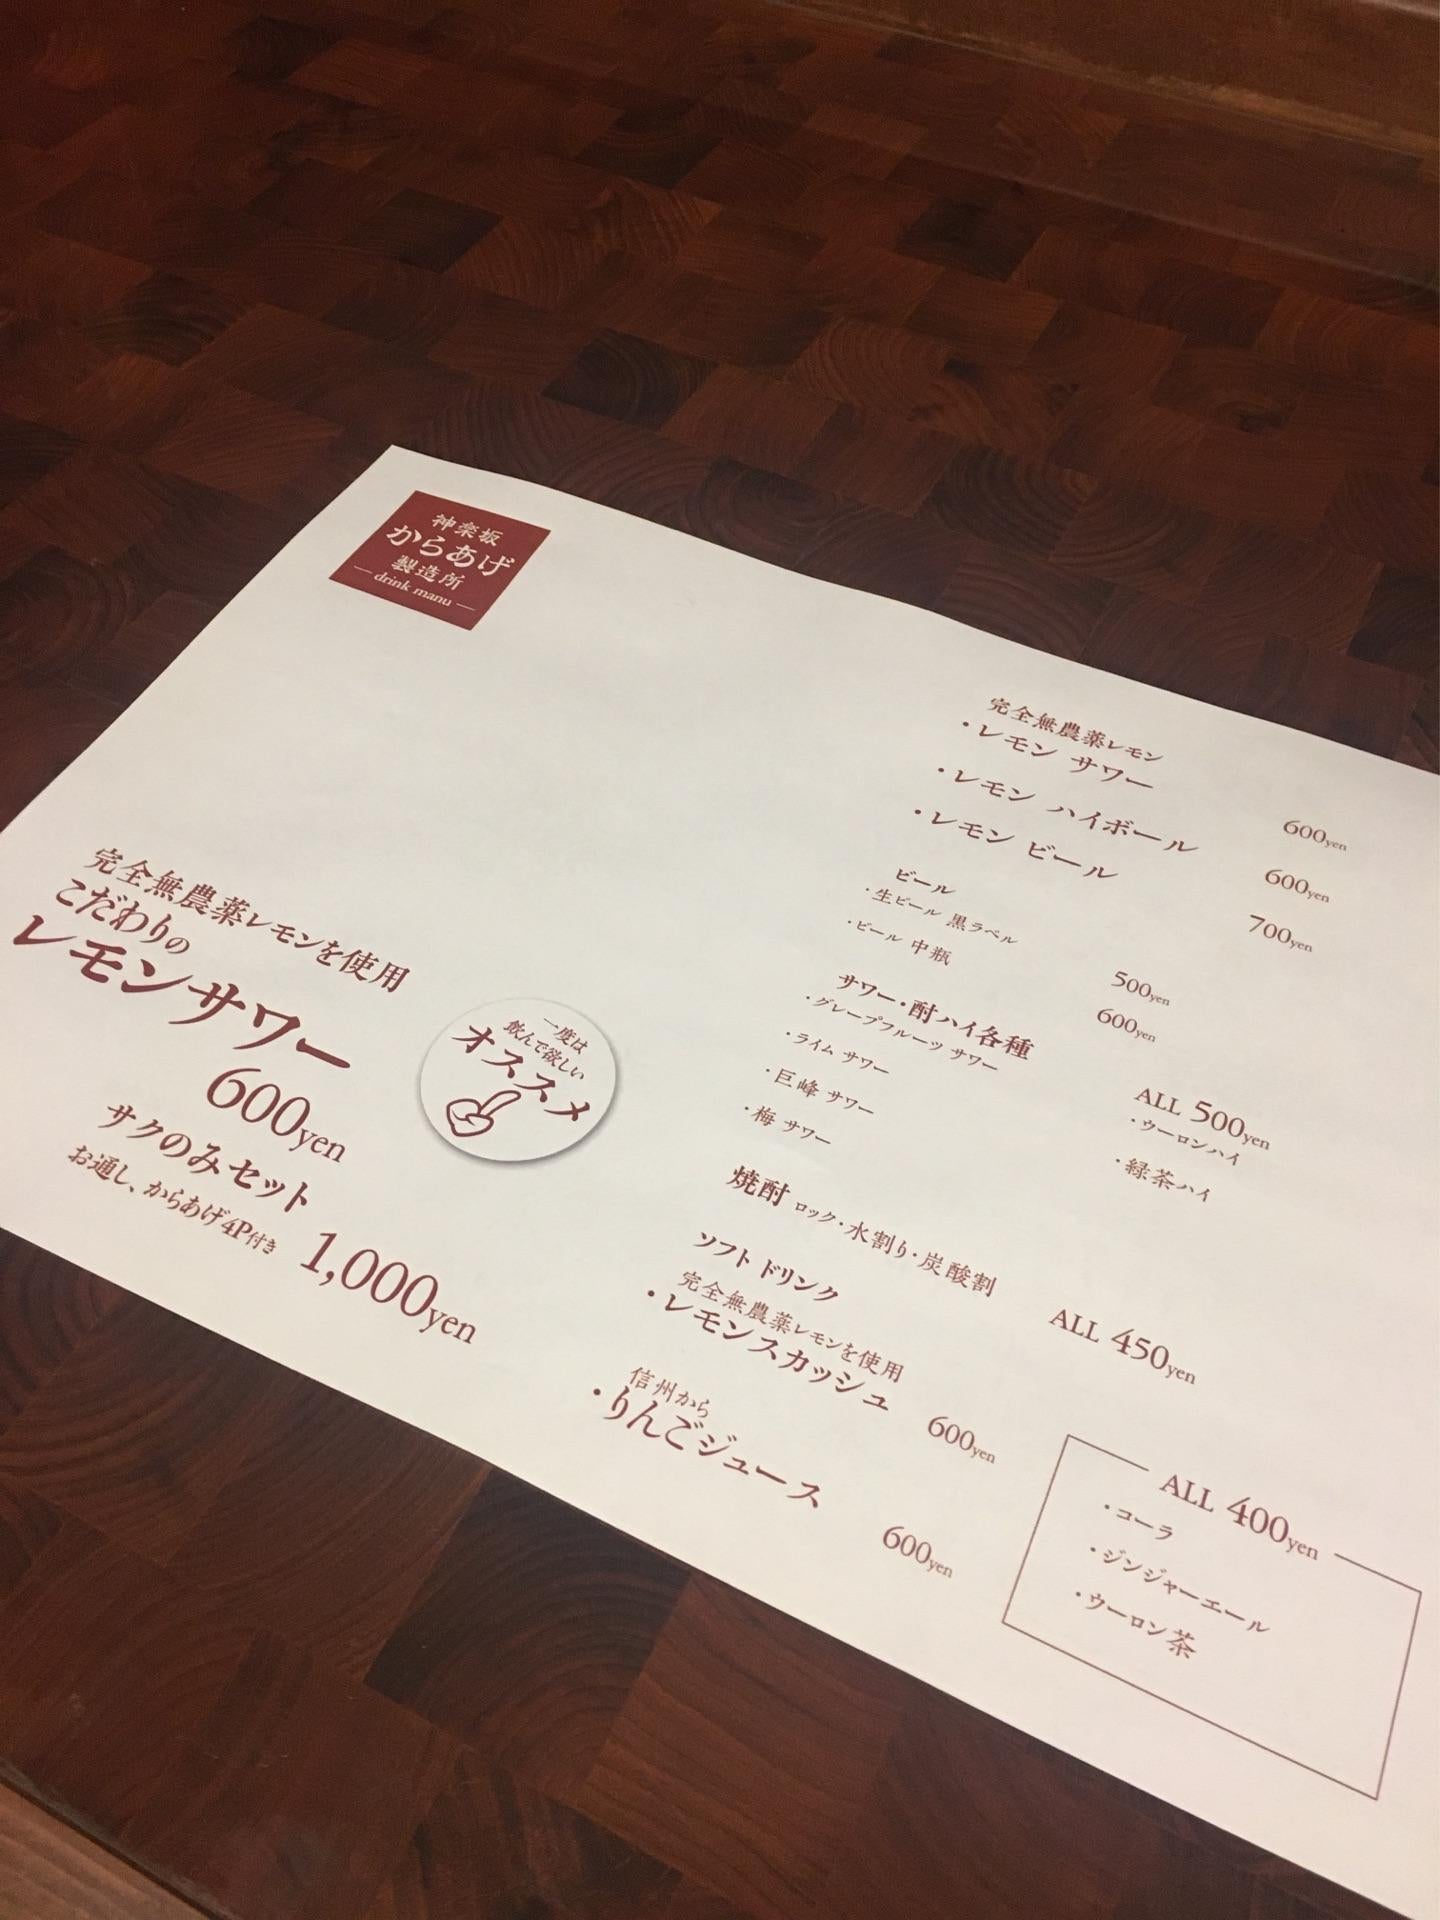 神楽坂
からあげ
製造所
drink manu
完全無農薬レモンを使用
こだわりの
レモンサワー
600yen
サクのみセット
お通し、からあげ4P付き
1,000yen
一度は
飲んで欲しい
オススメ
完全無農薬レモン
・レモン サワー 600yen
・レモン ハイボール 600yen
・レモン ビール 700yen
ビール
・生ビール 黒ラベル 500yen
・ビール 中瓶 600yen
サワー・酎ハイ各種 ALL 500yen
・グレープフルーツ サワー ・ウーロンハイ
・ライム サワー ・緑茶ハイ
・巨峰 サワー
・梅 サワー
焼酎 ロック・水割り・炭酸割 ALL 450yen
ソフト ドリンク
完全無農薬レモンを使用
・レモンスカッシュ 600yen
信州から
・りんごジュース 600yen
ALL 400yen
・コーラ
・ジンジャーエール
・ウーロン茶